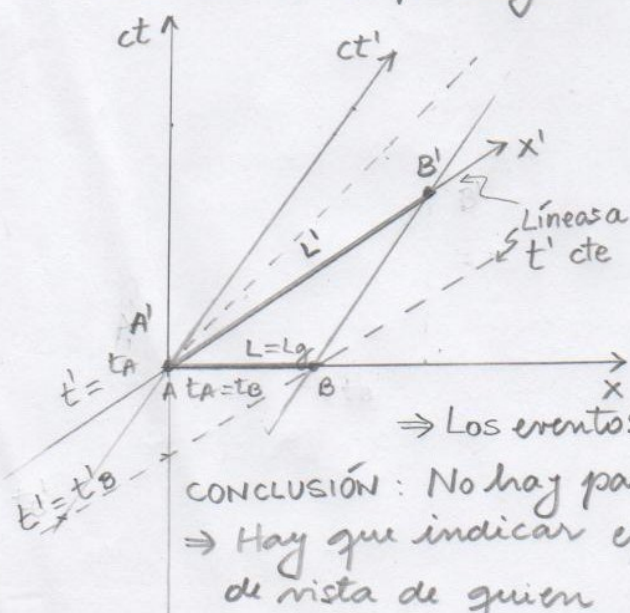 ct
ct'
X'
B'
Líneas a
t' cte
L'
A'
t' = tA
L=Lg
A tA=tB B
X
t' = t'B
⇒ Los eventos
CONCLUSIÓN: No hay pa
⇒ Hay que indicar e
de vista de quien